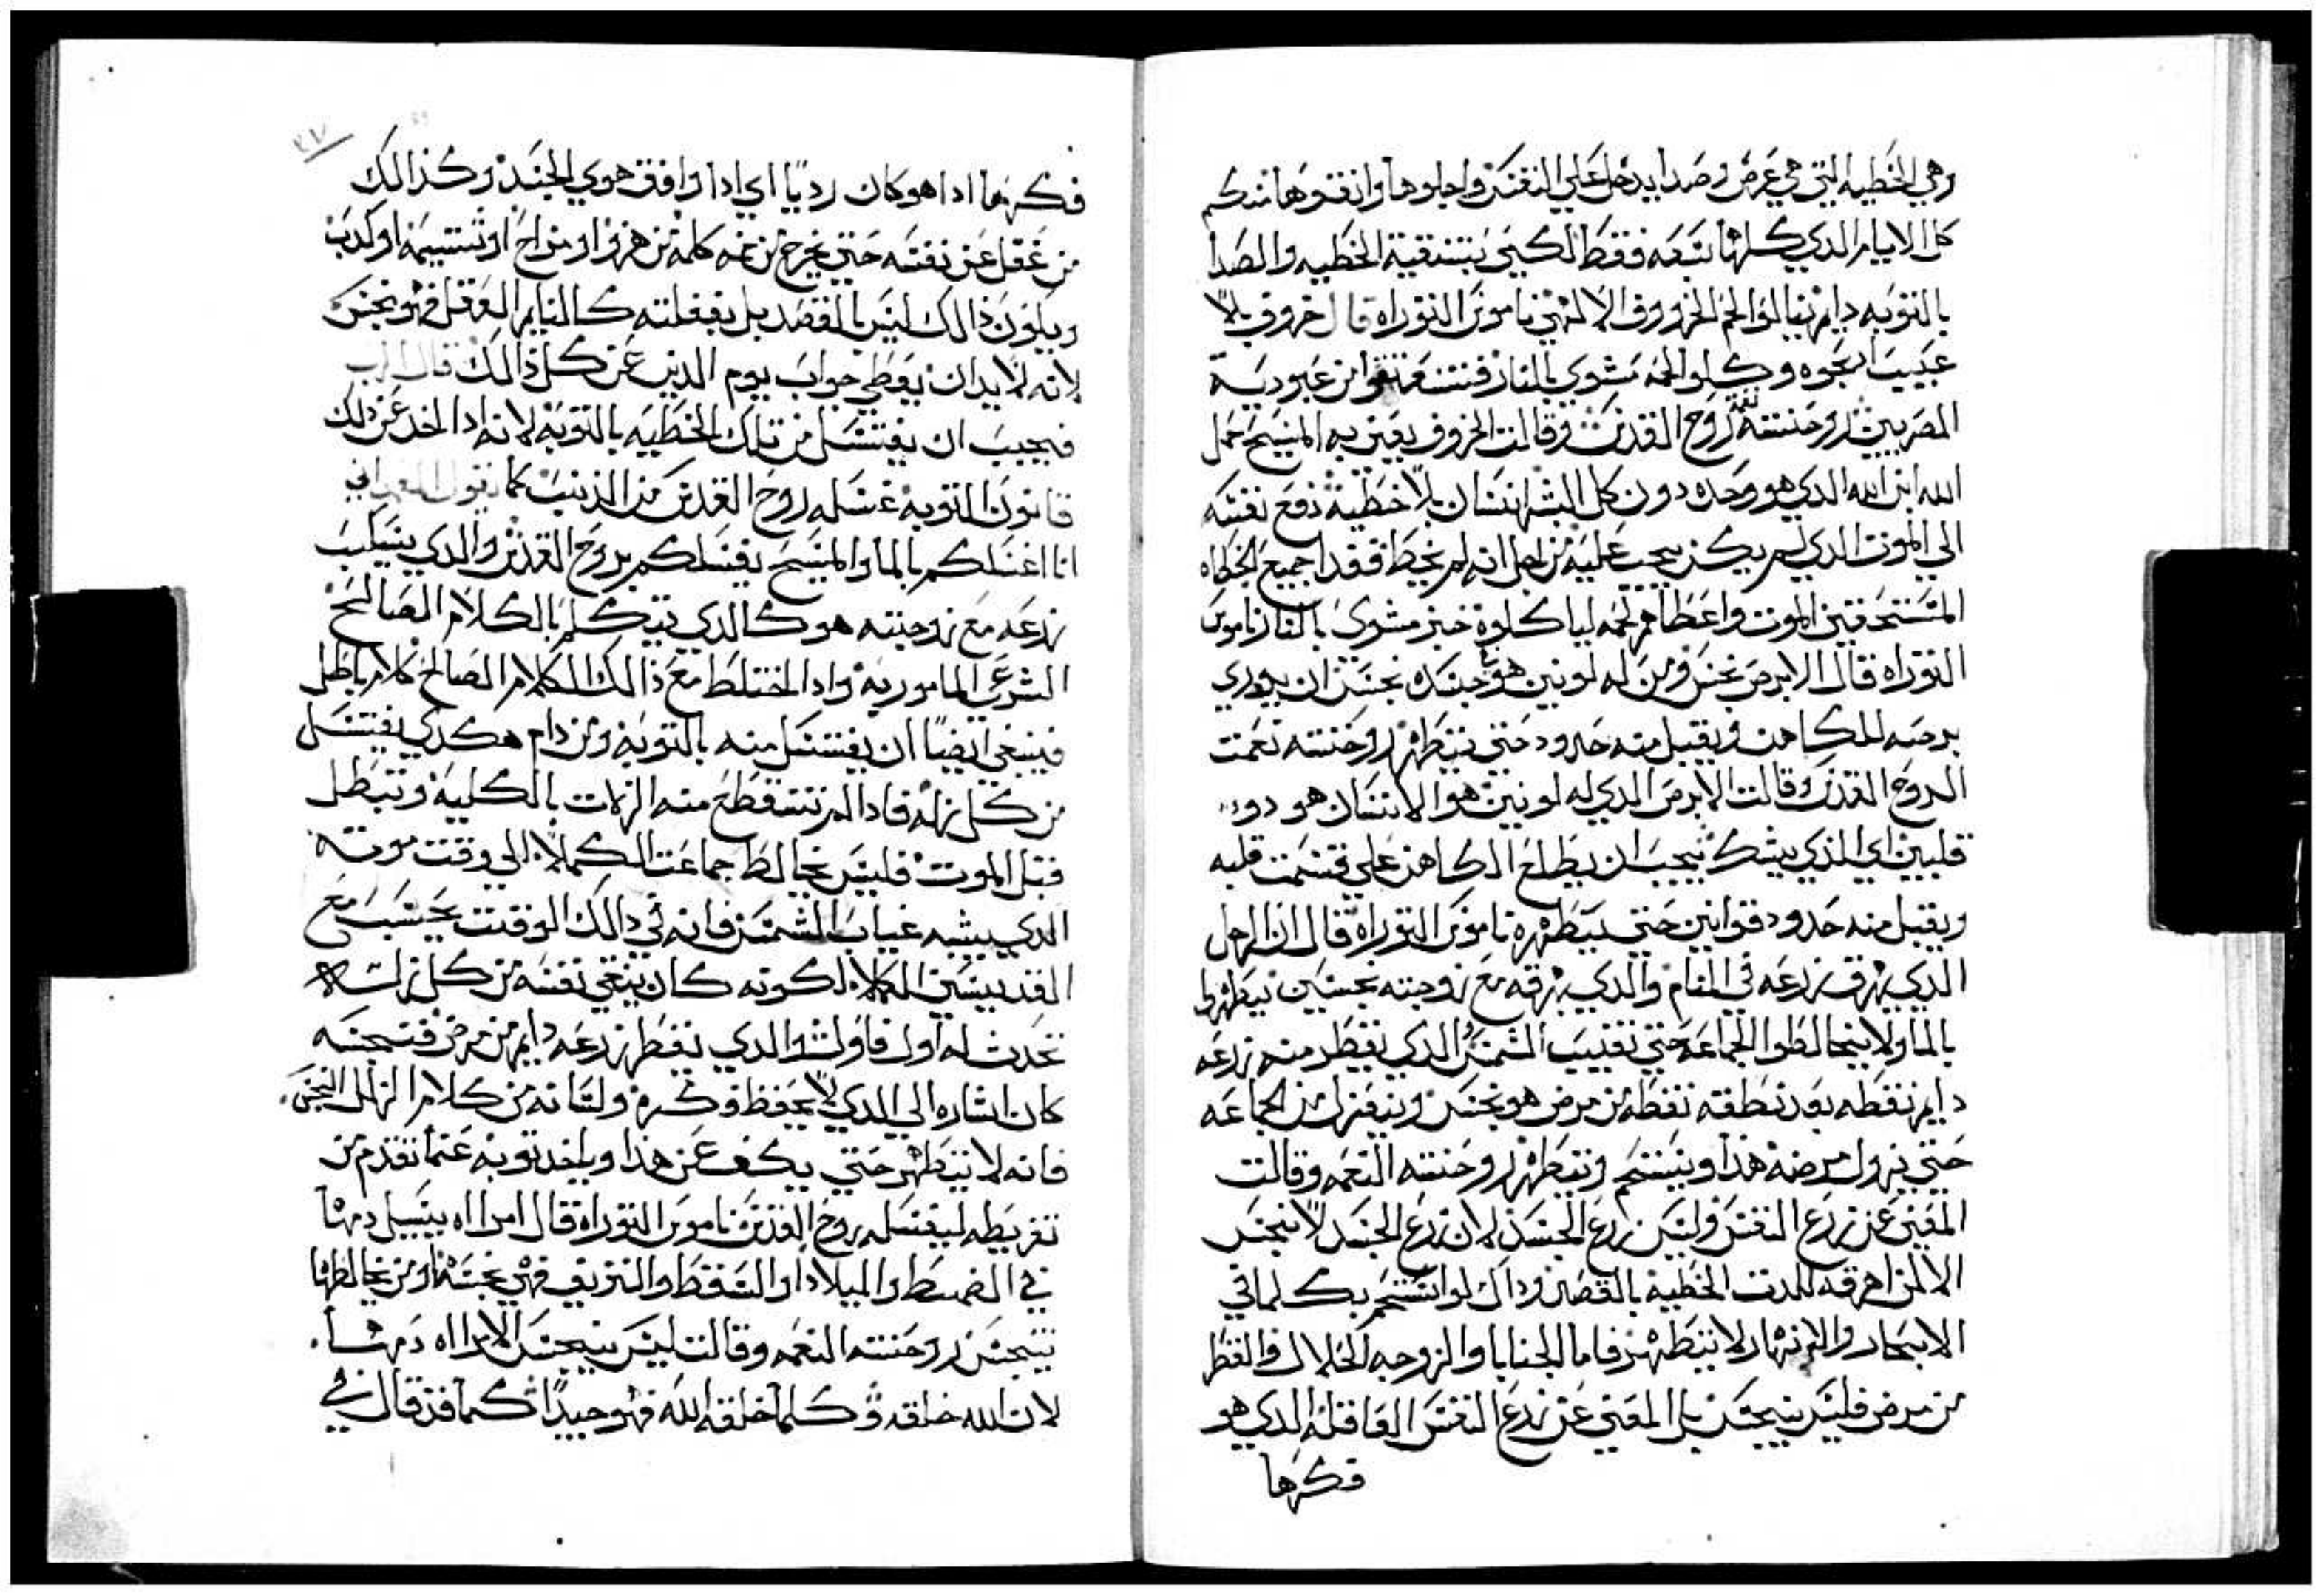 وهي الخطيه التي هي غرض وصدا يدخل علي النفس واجلوها وانقوها منكم
كل الايام الدي كلها سبعه فقط لكيي يتنقية الخطيه والصدا
بالتوبه دايم تنالوا لحم الخروف الالهي ناموس التوراه قال خروف بلا
عيب ادبحوه وكلوا لحمه مشوي بالنار فتنعتقوا من عبودية
المصريين روحنته روح القدس وقالت الخروف يعني به المسيح حمل
الله ابن الله الدي هو وحده دون كل البشر انسان بلا خطية دفع نفسه
الي الموت الدي لم يكن يجب عليه من اجل انه لم يخط ففدا جميع الخطاه
المستحقين الموت واعطاهم لحمه لياكلوه خبز مشوي بالنار ناموس
التوراه قال الابرص نجس ومن له لونين هو جسده نجس ان يوري
برصه للكاهن ويقبل منه حدود حتي يتطهر روحنته نعمت
الروح القدس وقالت الابرص الدي له لونين هو الانسان هو دو
قلبين اي الذي يشك يجب ان يطلع الكاهن علي قسمت قلبه
ويقبل منه حدود قوانين حتي يتطهر ناموس التوراه قال ان الرجل
الدي يهرق زرعه في المنام والدي يهرقه مع زوجته نجسين يتطهرا
بالما ولا يخالطوا الجماعه حتي تغيب الشمس والدي يقطر منه زرعه
دايم نقطه بعد نطقه نقطه من مرض هو نجس وينعزل من الجماعه
حتي يزول مرضه هذا ويستحم ويتطهر روحنته النعمه وقالت
المعني عن زرع النفس وليس زرع الجسد لان زرع الجسد لا ينجس
الا لمن اهرقه للدت الخطيه بالقصد وداك لو استحم بكلما في
الابحار والانهار لا يتطهر فاما الجنابا والزوجه الحلال والقطر
من مرض فليس ينجس بل المعني عن زرع النفس العاقله الدي هو
فكرها
فكرهما ادا هو كان رديا اي ادا وافق هوي الجسد وكذالك
من غفل عن نفسه حتي يخرج من فمه كلمه من هزو او مزاح او شتيمه او كدب
ويكون ذالك ليس بالقصد بل بغفلته كالنايم العقل فهو نجس
لانه لابد ان يعطي جواب يوم الدين عن كل ذالك قال الرب
فيجب ان يغتسل من تلك الخطيه بالتوبه لانه ادا اخد عن ذلك
قانون التوبه غسله روح القدس من الذنب كما يقول المعمداني
انا اغسلكم بالما والمسيح يغسلكم بروح القدس والدي يسكب
زرعه مع زوجته هو كالدي يتكلم بالكلام الصالح
الشرعي المامور به وادا اختلط مع ذالك الكلام الصالح كلام باطل
فينبغي ايضا ان يغتسل منه بالتوبه ومن دام هكدي يغتسل
من كل زله فادا لم تنقطع منه الزلات بالكليه وتبطل
قبل الموت فليس يخالط جماعت الكملا الي وقت موته
الدي يشبه غياب الشمس فانه في دالك الوقت يحسب مع
القديسين الكملا لكونه كان ينقي نفسه من كل زلت لا
تحدث له اول فاول والدي نقط زرعه دايم من مرض فتنجسه
كان اشاره الي الدي لا يحفظ فكره ولسانه من كلام الزلل النجس
فانه لا يتطهر حتي يكف عن هذا وياخد توبه عما تقدم من
تفريطه ليغسله روح القدس ناموس التوراه قال امراه يسيل دمها
في الضمط والميلاد او السقط والنزيف فهي نجسه ومن يخالطها
يتنجس روحنته النعمه وقالت ليس ينجس الامراه دمها
لان الله خلقه وكلما خلقه الله فهو جيدا كما قد قال في